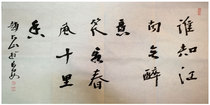 谁知江
南无醉
意
笑看春
风十里
香